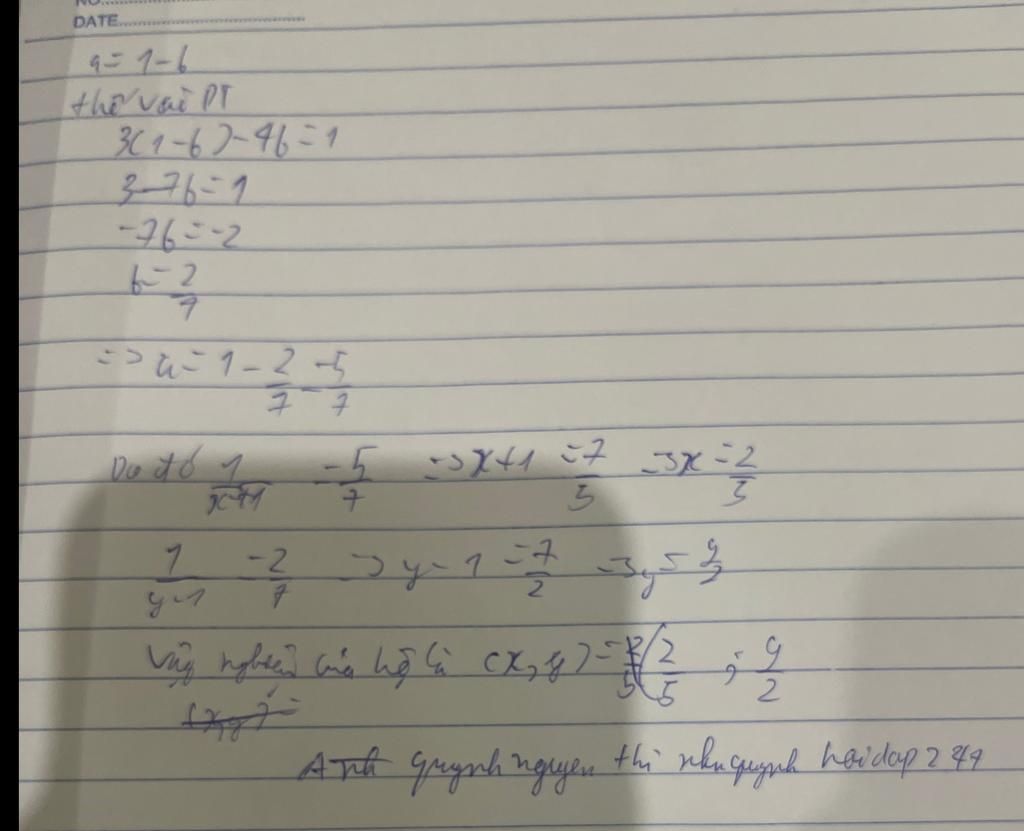 NO.
DATE
a = 1 - b
thế vào PT
3(1 - b) - 4b = 1
3 - 7b = 1
-7b = -2
b = 2/7
=> a = 1 - 2/7 = 5/7
Do đó 1/(x+1) = 5/7 => x+1 = 7/5 => x = 2/5
1/(y-1) = 2/7 => y - 1 = 7/2 => y = 9/2
Vậy nghiệm của hệ là (x, y) = (2/5 ; 9/2
(x,y) =
Anh quynh nguyen thi nhu quynh hoidap 247